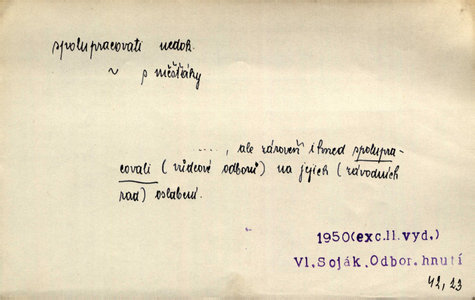 spolupracovati nedok.
~ s měšťáky
....., ale zároveň ihned spolupra-
covali (vůdcové odborů) na jejich (závodních
rad) oslabení.
1950(exc.II.vyd.)
Vl.Soják, Odbor.hnutí
42, 23